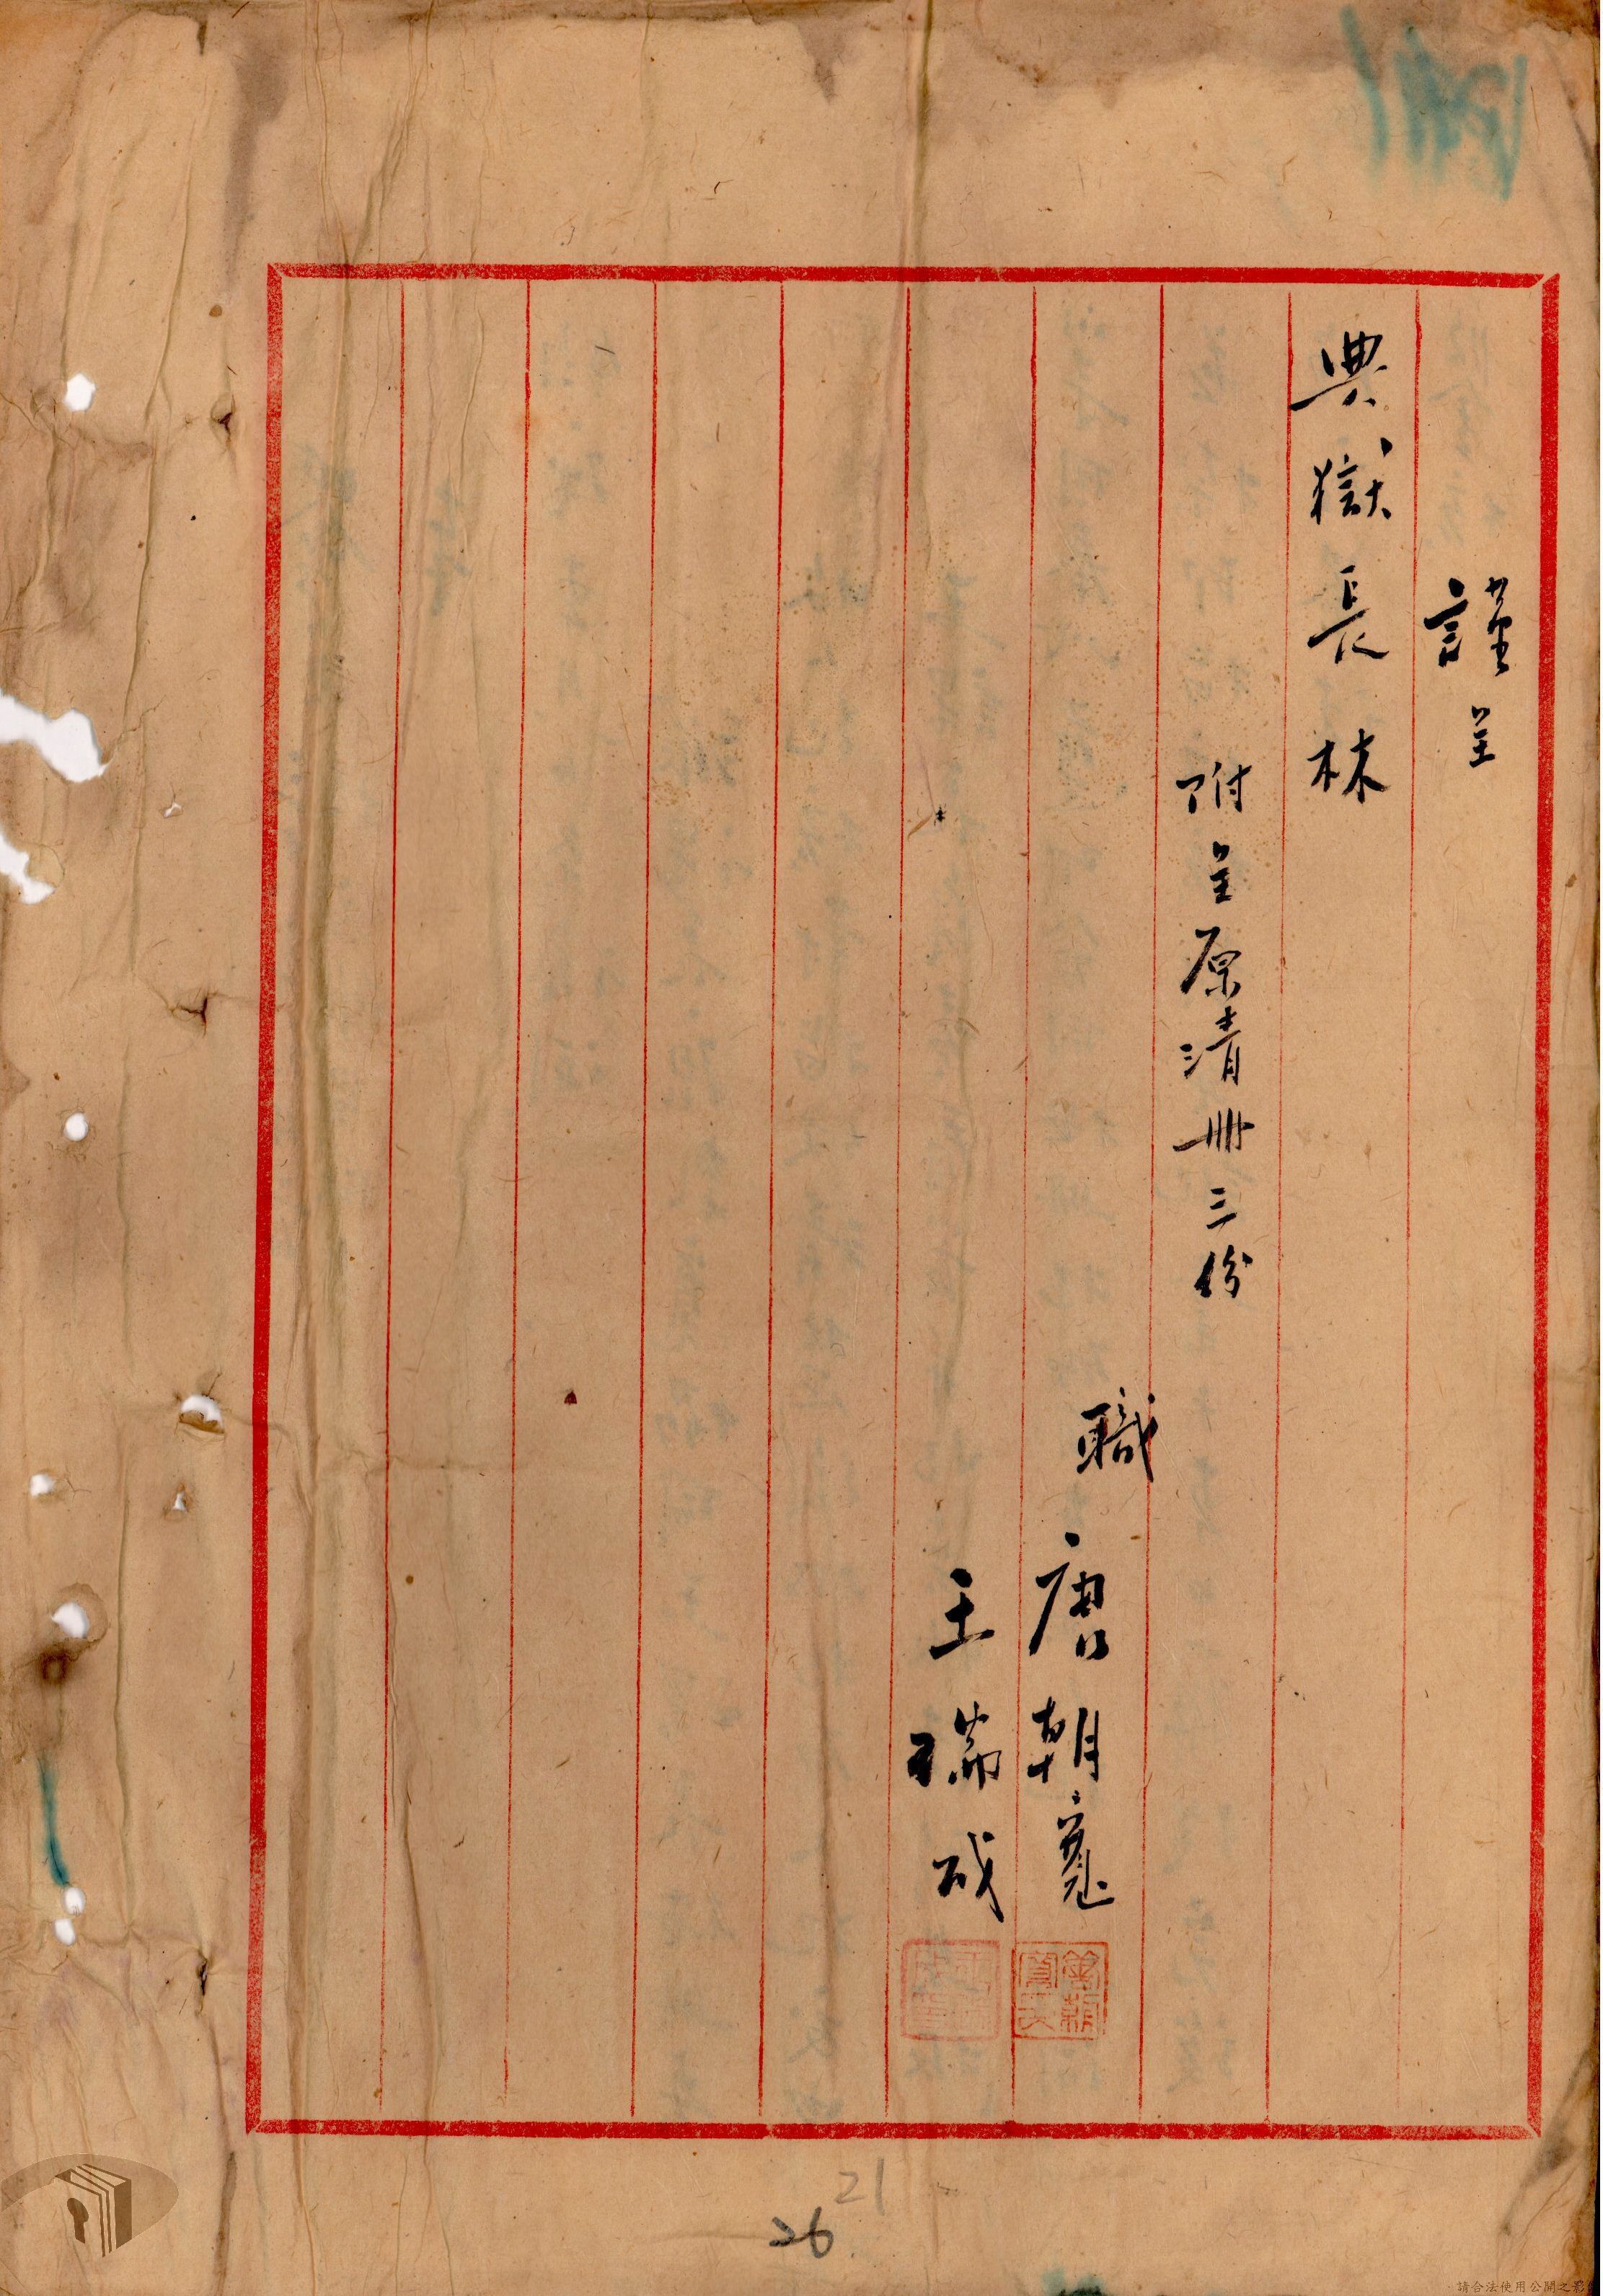 謹呈
典獄長林
附呈原清冊三份
職
唐朝寬
王瑞成
21
26
請合法使用公開之影